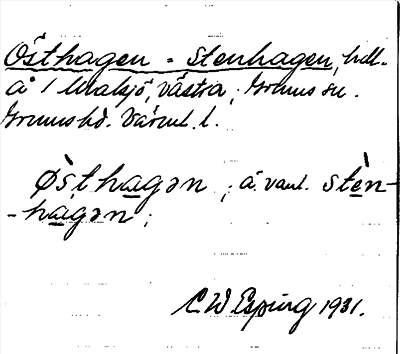 Östhagen - Stenhagen, hdl.
å 1 Ulvsjö, västra, Grums sn.
Grums hd. Värml. l.
Østhagən ; ä. vanl. stèn-
-hagən ;
C W Esping 1931.